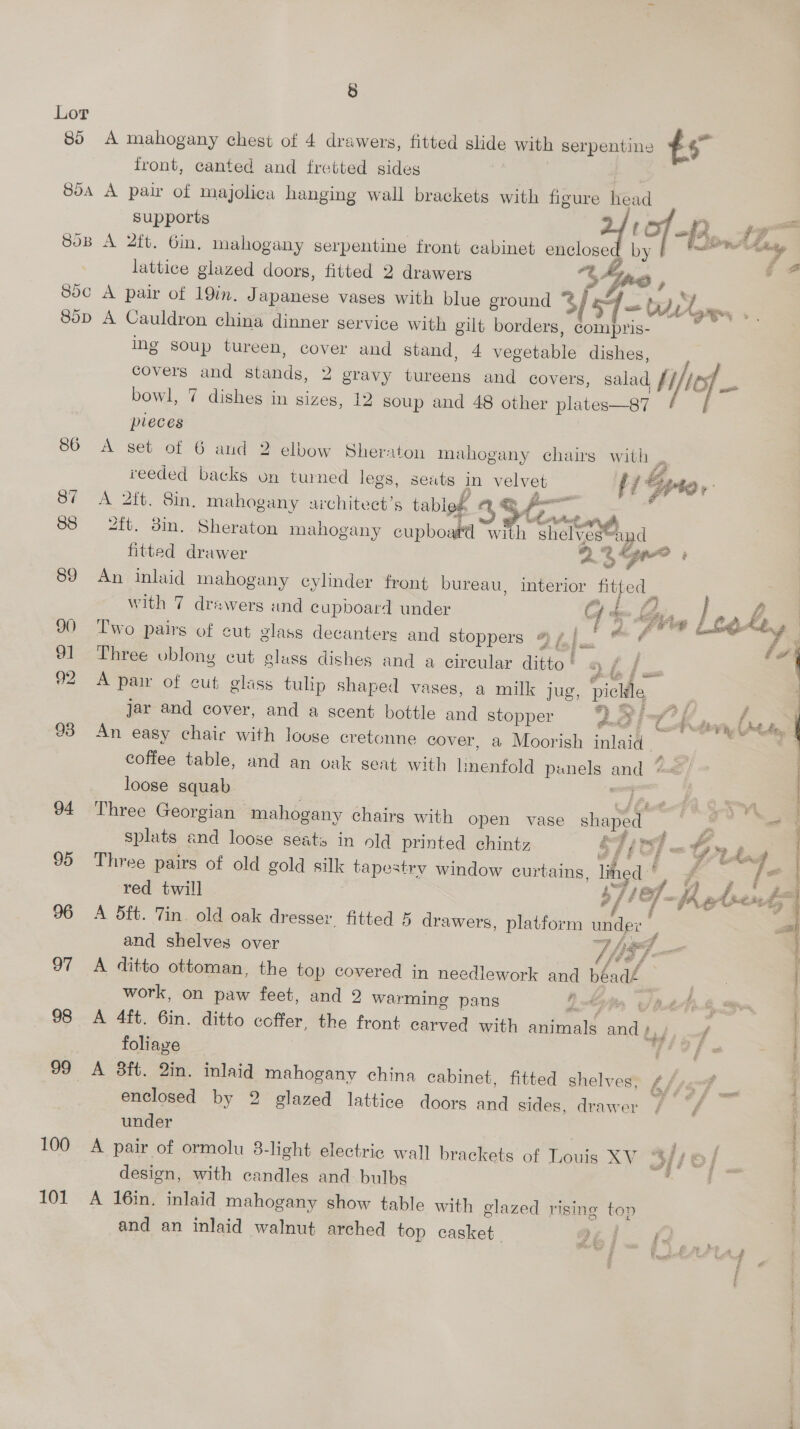 8
Lot
85 A mahogany chest of 4 drawers, fitted slide with serpentine
front, canted and fretted sides
85A A pair of majolica hanging wall brackets with figure head
supports
85B A 2ft. 6in. mahogany serpentine front cabinet enclosed by
lattice glazed doors, fitted 2 drawers
85C A pair of 19in. Japanese vases with blue ground
85D A Cauldron china dinner service with gilt borders, compris-
ing soup tureen, cover and stand, 4 vegetable dishes,
covers and stands, 2 gravy tureens and covers, salad
bowl, 7 dishes in sizes, 12 soup and 48 other plates—87
pieces
86 A set of 6 and 2 elbow Sheraton mahogany chairs with
reeded backs on turned legs, seats in velvet
87 A 2ft. 8in. mahogany architect's table
88 2ft. 3in. Sheraton mahogany cupboard with shelves and
fitted drawer
89 An inlaid mahogany cylinder front bureau, interior fitted
with 7 drawers and cupboard under
90 Two pairs of cut glass decanters and stoppers
91 Three oblong cut glass dishes and a circular ditto
92 A pair of cut glass tulip shaped vases, a milk jug, pickle
jar and cover, and a scent bottle and stopper
93 An easy chair with loose cretonne cover, a Moorish inlaid
coffee table, and an oak seat with linenfold panels and
loose squab
94 Three Georgian mahogany chairs with open vase shaped
splats and loose seats in old printed chintz
95 Three pairs of old gold silk tapestry window curtains, lined
red twill
96 A 5ft. 7in. old oak dresser, fitted 5 drawers, platform under
and shelves over
97 A ditto ottoman, the top covered in needlework and bead
work, on paw feet, and 2 warming pans
98 A 4ft. 6in. ditto coffer, the front carved with animals and
foliage
99 A 3ft. 2in. inlaid mahogany china cabinet, fitted shelves,
enclosed by 2 glazed lattice doors and sides, drawer
under
100 A pair of ormolu 3-light electric wall brackets of Louis XV
design, with candles and bulbs
101 A 16in. inlaid mahogany show table with glazed rising top
and an inlaid walnut arched top casket